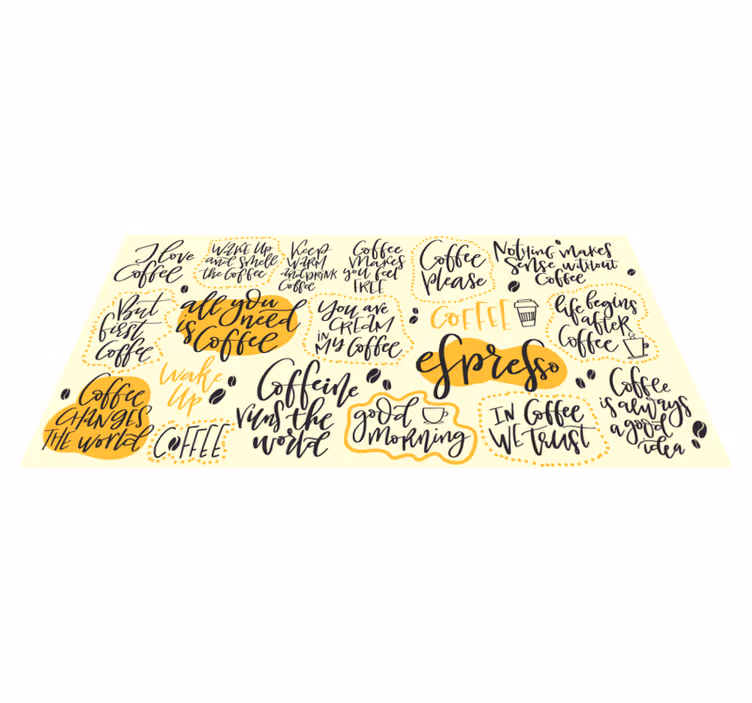 I love
Coffee
Wake Up
and smell
the Coffee
Keep
WARM
and DRINK
Coffee
Coffee
makes
you feel
FREE
Coffee
please
Nothing makes
sense without
Coffee
But
first
Coffee
all you
need
is Coffee
You are
CREAM
in
My Coffee
COFFEE
life begins
after
Coffee
espresso
Coffee
CHANGES
THE world
wake
Up
COFFEE
Caffeine
runs the
world
good
morning
IN Coffee
WE trust
Coffee
is always
a good
idea